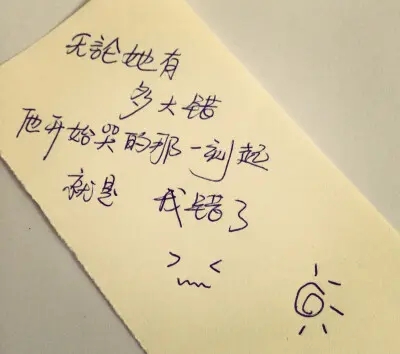 无論她有
多大错
她开始哭的那一刻起
就是 我错了